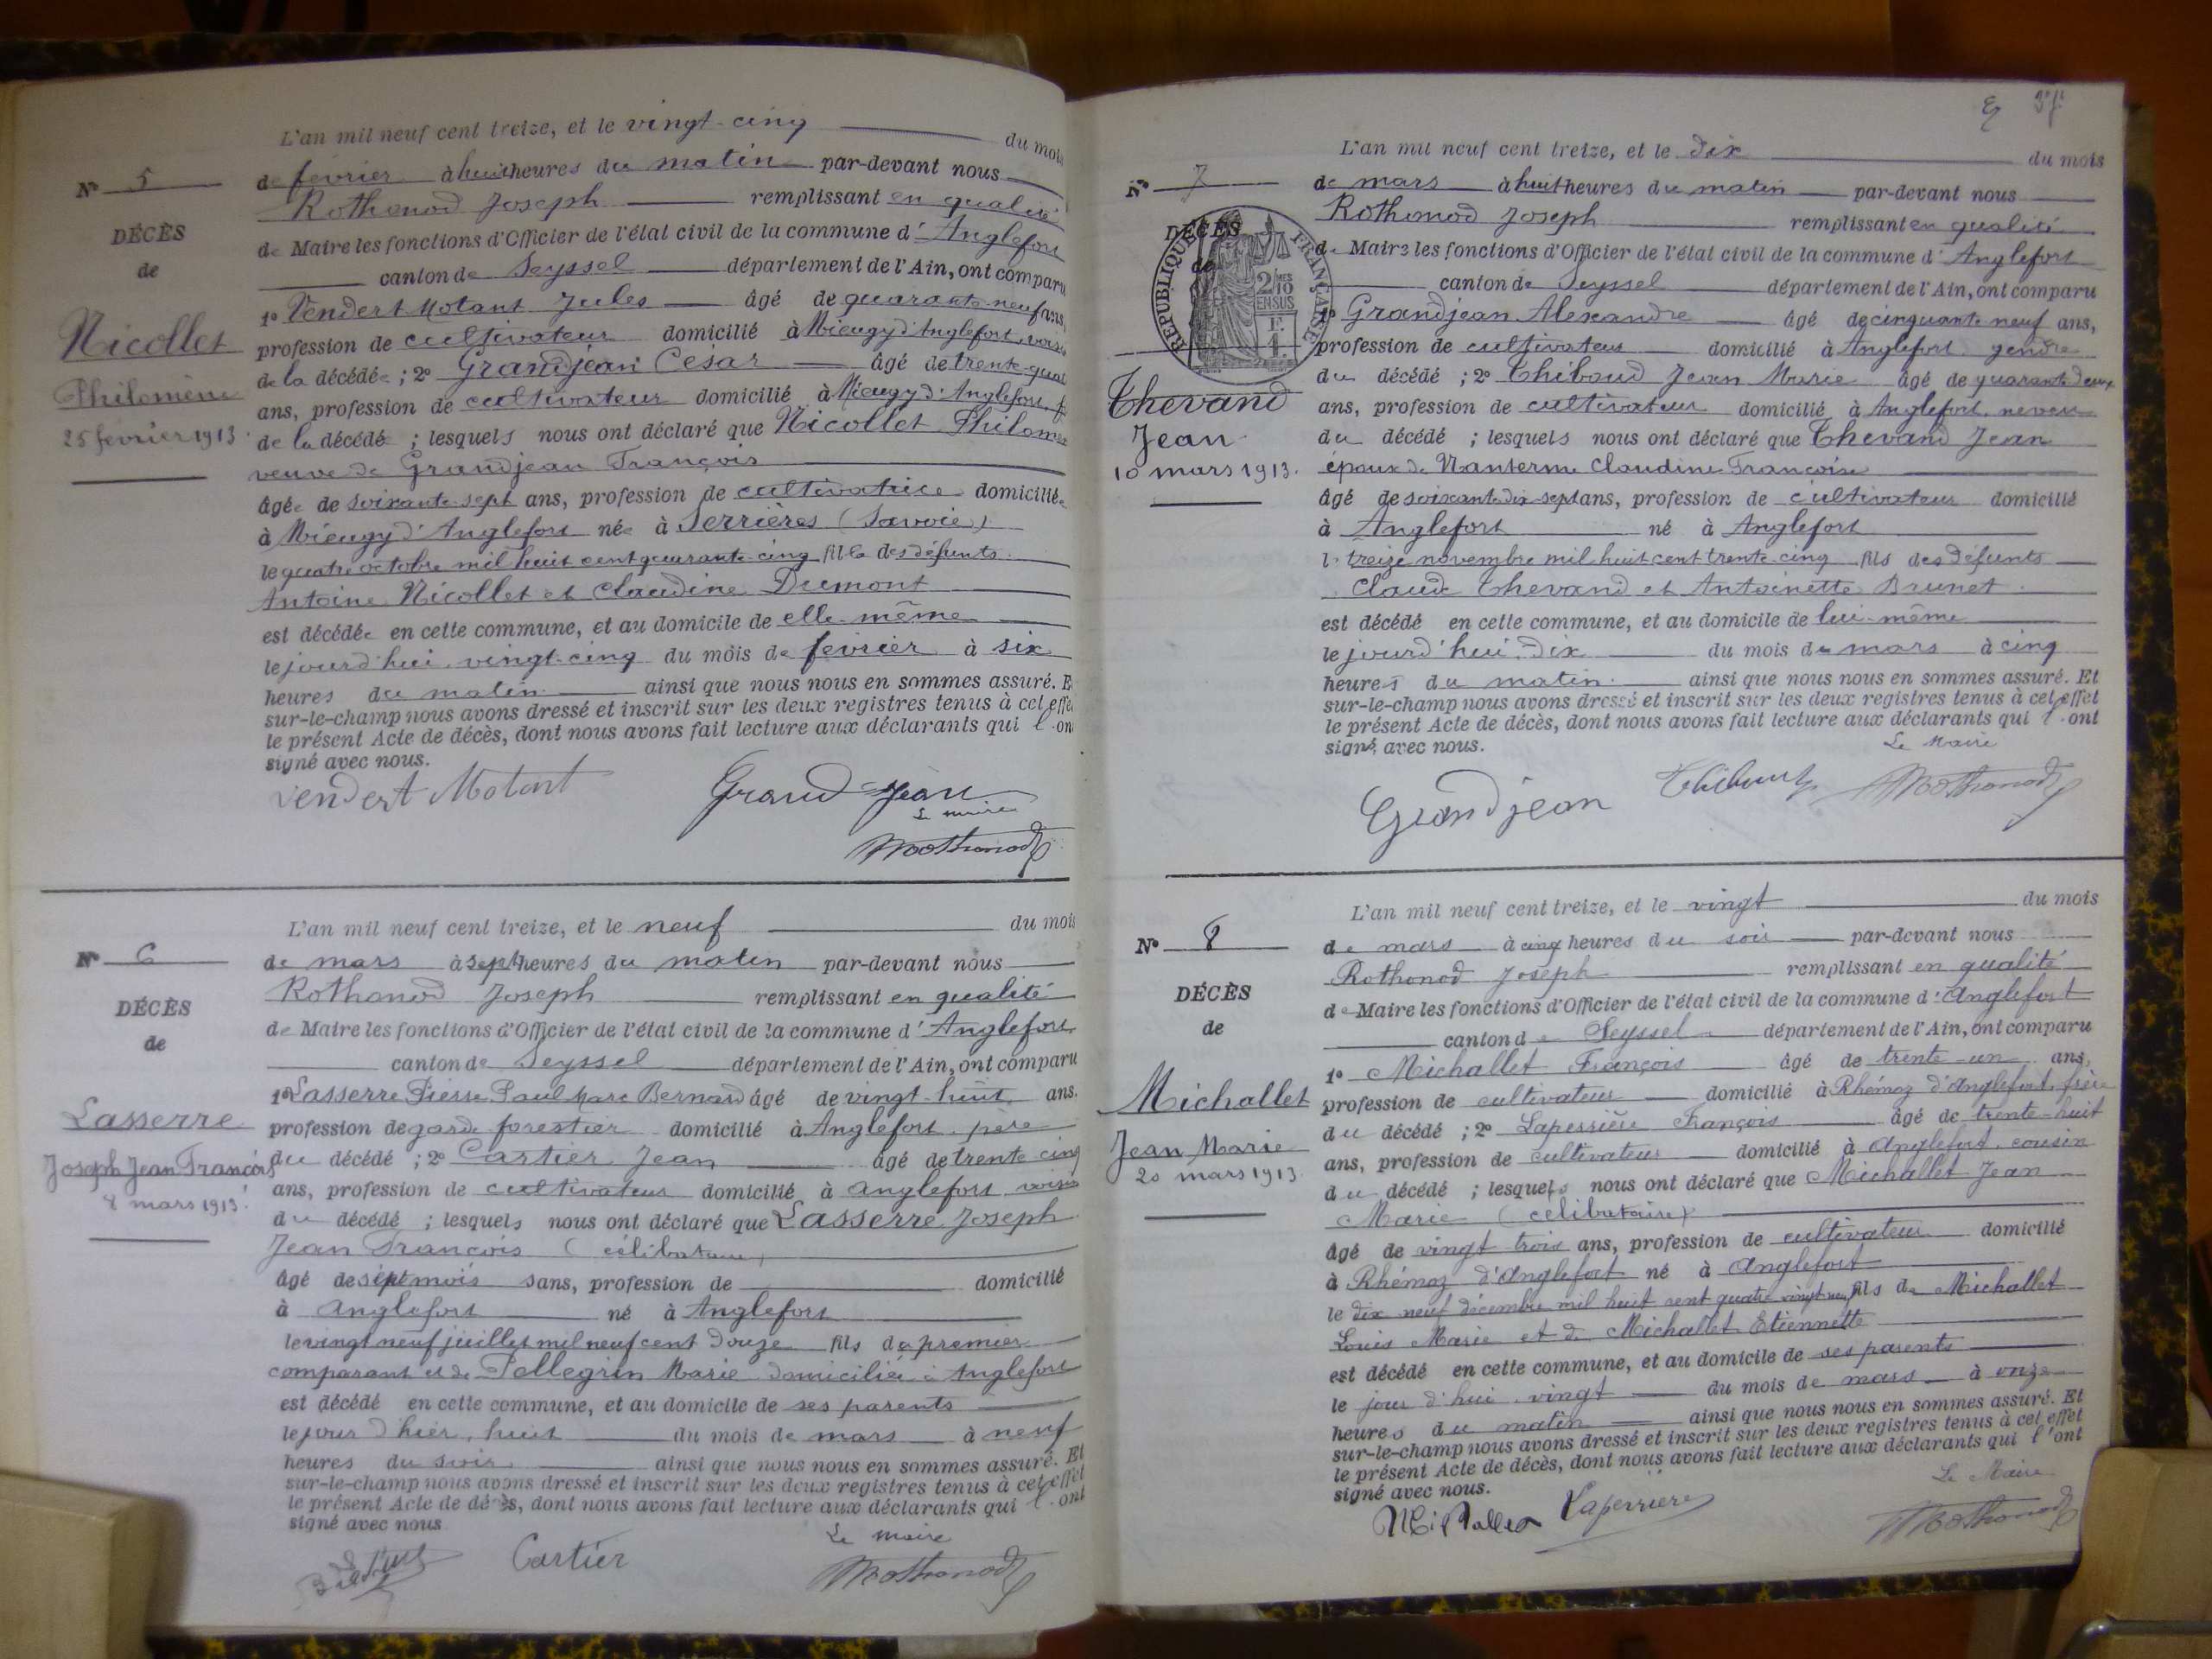 L'an mil neuf cent treize, et le vingt-cinq du mois
de février à huit heures du matin par-devant nous
Rothonod Joseph remplissant en qualité
de Maire les fonctions d'Officier de l'état civil de la commune d'Anglefort
canton de Seyssel département de l'Ain, ont comparu
1º Vendert Motant Jules âgé de quarante neuf ans,
profession de cultivateur domicilié à Mieugy d'Anglefort, voisin
de la décédée ; 2º Grandjean César âgé de trente-quat
ans, profession de cultivateur domicilié à Mieugy d'Anglefort, f
de la décédée ; lesquels nous ont déclaré que Nicollet Philomè
veuve de Grandjean François
âgée de soixante-sept ans, profession de cultivatrice domiciliée
à Mieugy d'Anglefort née à Serrières (Savoie)
le quatre octobre mil huit cent quarante-cinq fille des défunts
Antoine Nicollet et Claudine Dumont
est décédée en cette commune, et au domicile de elle-même
le jourd'hui vingt-cinq du mois de février à six
heures du matin ainsi que nous nous en sommes assuré. Et
sur-le-champ nous avons dressé et inscrit sur les deux registres tenus à cet effet
le présent Acte de décès, dont nous avons fait lecture aux déclarants qui l'ont
signé avec nous.
Vendert Motant
Grand Jean
Le maire
Rothonod
Nº 5
DÉCÈS
de
Nicollet
Philomène
25 février 1913
L'an mil neuf cent treize, et le neuf du mois
de mars à sept heures du matin par-devant nous
Rothonod Joseph remplissant en qualité
de Maire les fonctions d'Officier de l'état civil de la commune d'Anglefort
canton de Seyssel département de l'Ain, ont comparu
1º Lasserre Pierre Paul Marc Bernard âgé de vingt-huit ans.
profession de garde forestier domicilié à Anglefort père
du décédé ; 2º Cartier Jean âgé de trente cinq
ans, profession de cultivateur domicilié à Anglefort voisin
du décédé ; lesquels nous ont déclaré que Lasserre Joseph
Jean François (célibataire)
âgé de sept mois ans, profession de domicilié
à Anglefort né à Anglefort
le vingt neuf juillet mil neuf cent douze fils du premier
comparant et de Pellegrin Marie domiciliée à Anglefort
est décédé en cette commune, et au domicile de ses parents
le jour d'hier, huit du mois de mars à neuf
heures du soir ainsi que nous nous en sommes assuré. Et
sur-le-champ nous avons dressé et inscrit sur les deux registres tenus à cet effet
le présent Acte de décès, dont nous avons fait lecture aux déclarants qui l'ont
signé avec nous
Cartier
Le maire
Rothonod
Nº 6
DÉCÈS
de
Lasserre
Joseph Jean François
8 mars 1913
L'an mil neuf cent treize, et le dix du mois
de mars à huit heures du matin par-devant nous
Rothonod Joseph remplissant en qualité
de Maire les fonctions d'Officier de l'état civil de la commune d'Anglefort
canton de Seyssel département de l'Ain, ont comparu
1º Grandjean Alexandre âgé de cinquante neuf ans,
profession de cultivateur domicilié à Anglefort gendre
du décédé ; 2º Thiboud Jean Marie âgé de quarante deux
ans, profession de cultivateur domicilié à Anglefort, neveu
du décédé ; lesquels nous ont déclaré que Thevand Jean
époux de Nanterme Claudine Françoise
âgé de soixante dix-sept ans, profession de cultivateur domicilié
à Anglefort né à Anglefort
le treize novembre mil huit cent trente-cinq fils des défunts
Claude Thevand et Antoinette Brunet
est décédé en cette commune, et au domicile de lui-même
le jourd'hui dix du mois de mars à cinq
heures du matin ainsi que nous nous en sommes assuré. Et
sur-le-champ nous avons dressé et inscrit sur les deux registres tenus à cet effet
le présent Acte de décès, dont nous avons fait lecture aux déclarants qui l'ont
signé avec nous.
Le Maire
Grandjean
Rothonod
Nº 7
DÉCÈS
de
RÉPUBLIQUE FRANÇAISE
2/10 MES
EN SUS
Thevand
Jean
10 mars 1913.
L'an mil neuf cent treize, et le vingt du mois
de mars à cinq heures du soir par-devant nous
Rothonod Joseph remplissant en qualité
de Maire les fonctions d'Officier de l'état civil de la commune d'Anglefort
canton de Seyssel département de l'Ain, ont comparu
1º Michallet François âgé de trente-un ans,
profession de cultivateur domicilié à Rhémoz d'Anglefort, frère
du décédé ; 2º Laperrière François âgé de trente-huit
ans, profession de cultivateur domicilié à Anglefort cousin
du décédé ; lesquels nous ont déclaré que Michallet Jean
Marie (célibataire)
âgé de vingt trois ans, profession de cultivateur domicilié
à Rhémoz d'Anglefort né à Anglefort
le dix neuf décembre mil huit cent quatre vingt-neuf fils de Michallet
Louis Marie et de Michallet Etiennette
est décédé en cette commune, et au domicile de ses parents
le jour d'hui vingt du mois de mars à onze
heures du matin ainsi que nous nous en sommes assuré. Et
sur-le-champ nous avons dressé et inscrit sur les deux registres tenus à cet effet
le présent Acte de décès, dont nous avons fait lecture aux déclarants qui l'ont
signé avec nous.
Le Maire
Michallet Laperriere
Rothonod
Nº 8
DÉCÈS
de
Michallet
Jean Marie
20 mars 1913